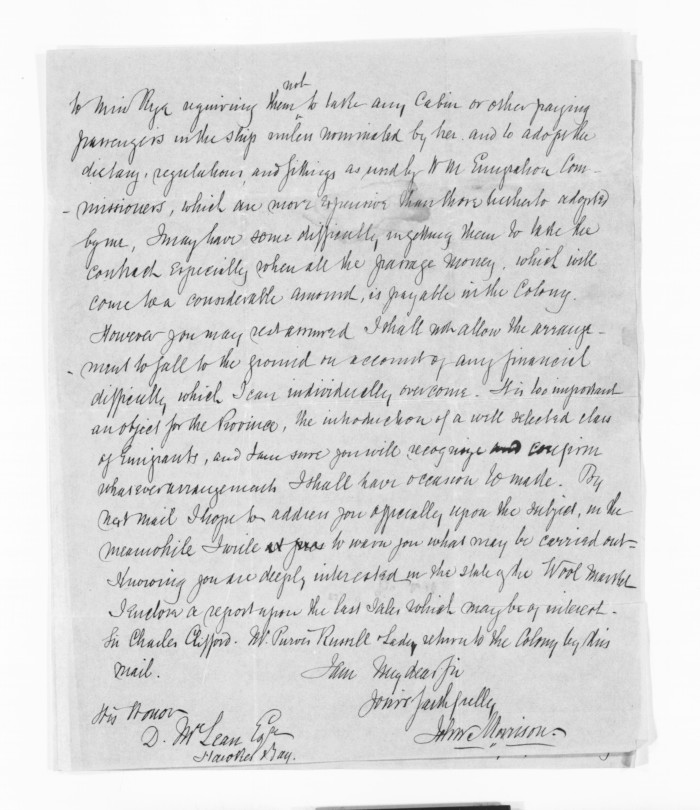 to Miss Rye requiring them not to take any Cabin or other paying
passengers in the ship unless nominated by her and to adopt the
dietary, regulations, and fittings as used by H M Emigration Com-
-missioners, which are more expensive than those hitherto adopted
by me, I may have some difficulty in getting them to take the
contract especially when all the passage money, which will
come to a considerable amount, is payable in the Colony.
However you may rest assured I shall not allow the arrange-
-ment to fall to the ground on account of any financial
difficulty which I can individually overcome. It is too important
an object for the Province, the introduction of a well selected class
of Emigrants, and I am sure you will recognize and confirm
whatever arrangements I shall have occasion to made. By
next mail I hope to address you officially upon the subject, in the
meanwhile I write to warn you what may be carried out-
Knowing you are deeply interested in the state of the Wool Market
I enclose a report upon the last Sales which may be of interest-
Sir Charles Clifford. Mr Purvis Russell & Lady return to the Colony by this
mail.
I am My dear Sir
Yours faithfully
John Morrison.
His Honor
D. McLean Esqre
Hawkes Bay.